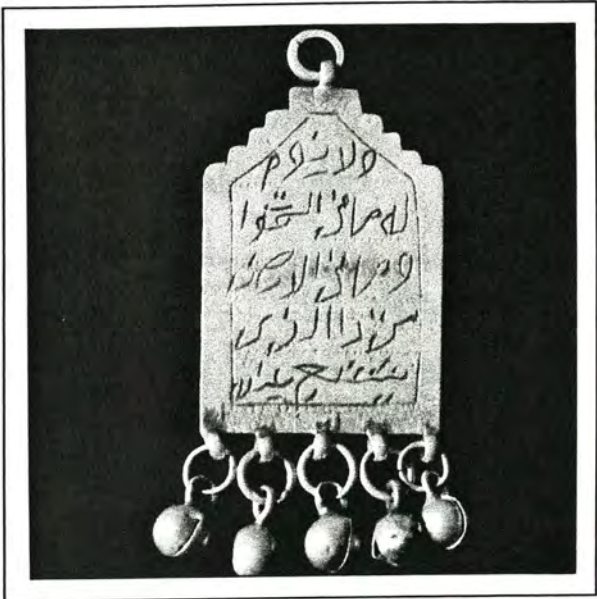 ولا نوم
له ما في السموا
وما في الارض
من ذا الذي
يشفع